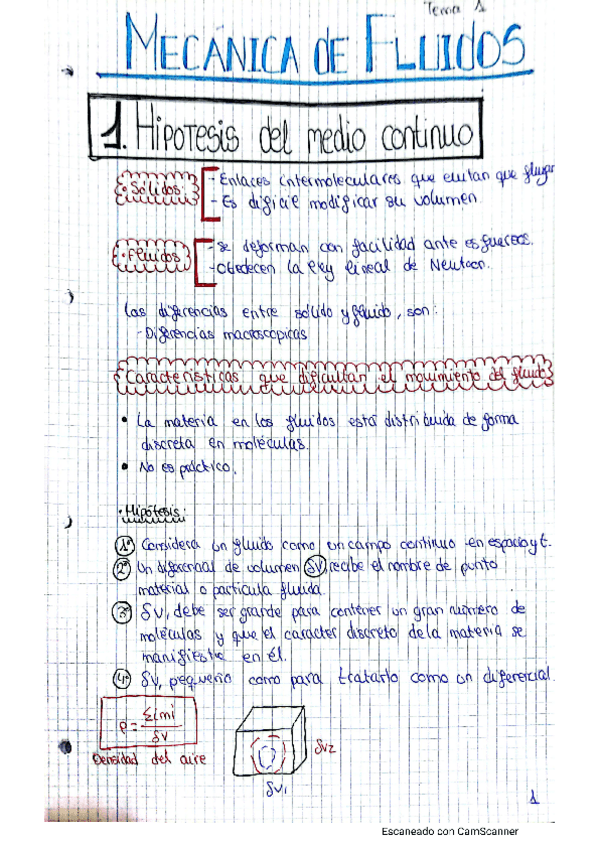 Tema 1
MECÁNICA DE FLUIDOS
1. HIPOTESIS del medio continuo
· Sólidos
- Enlaces intermoleculares que evitan que fluyan
- Es dificil modificar su volumen.
· Fluidos
- Se deforman con facilidad ante esfuerzos.
- Obedecen la ley lineal de Newton.
Las diferencias entre sólido y fluido, son:
- Diferencias macroscopicas
Características que dificultan el movimiento del fluido
• La materia en los fluidos está distribuida de forma
discreta en moléculas.
• No es práctico.
· Hipótesis:
1º Considera un fluido como un campo continuo en espacio y t.
2º Un diferencial de volumen δV, recibe el nombre de punto
material o partícula fluida.
3º δV, debe ser grande para contener un gran número de
moléculas y que el caracter discreto de la materia se
manifieste en él.
4º δV, pequeño como para tratarlo como un diferencial.
ρ = Σimi / δV
Densidad del aire
δV2
δV1
1
Escaneado con CamScanner